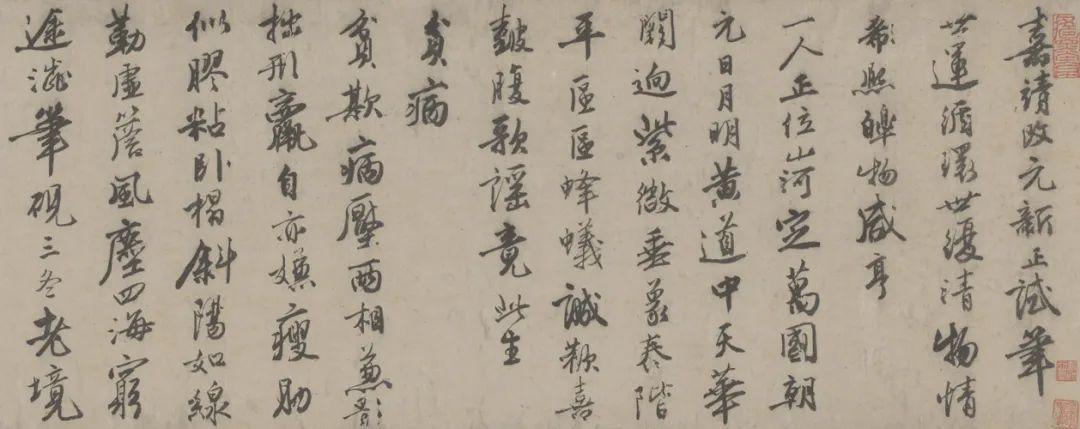 嘉靖改元新正試筆
世運循環世復清物情
熙皞物咸亨
一人正位山河定萬國朝
元日月明黃道中天華
闕迥紫微垂象泰階
平區區蜂蟻誠歡喜
鼓腹歌謠竟此生
貧病
貧欺病壓兩相兼影
拙形羸自亦嫌瘦肋
似膠粘卧榻斜陽如線
虛簷風塵四海窮
途澁筆硯三冬老境